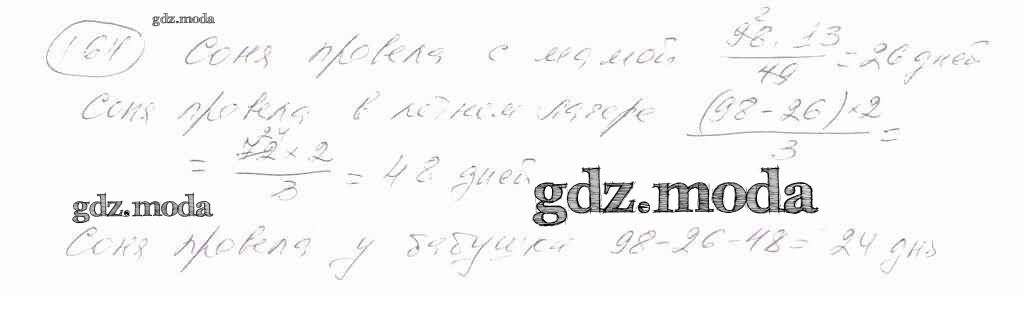 gdz.moda
164 Соня провела с мамой 98 · 13 / 49 = 26 дней
Соня провела в летнем лагере (98 - 26) × 2 / 3 =
= 72 × 2 / 3 = 48 дней
gdz.moda
gdz.moda
Соня провела у бабушки 98 - 26 - 48 = 24 дня